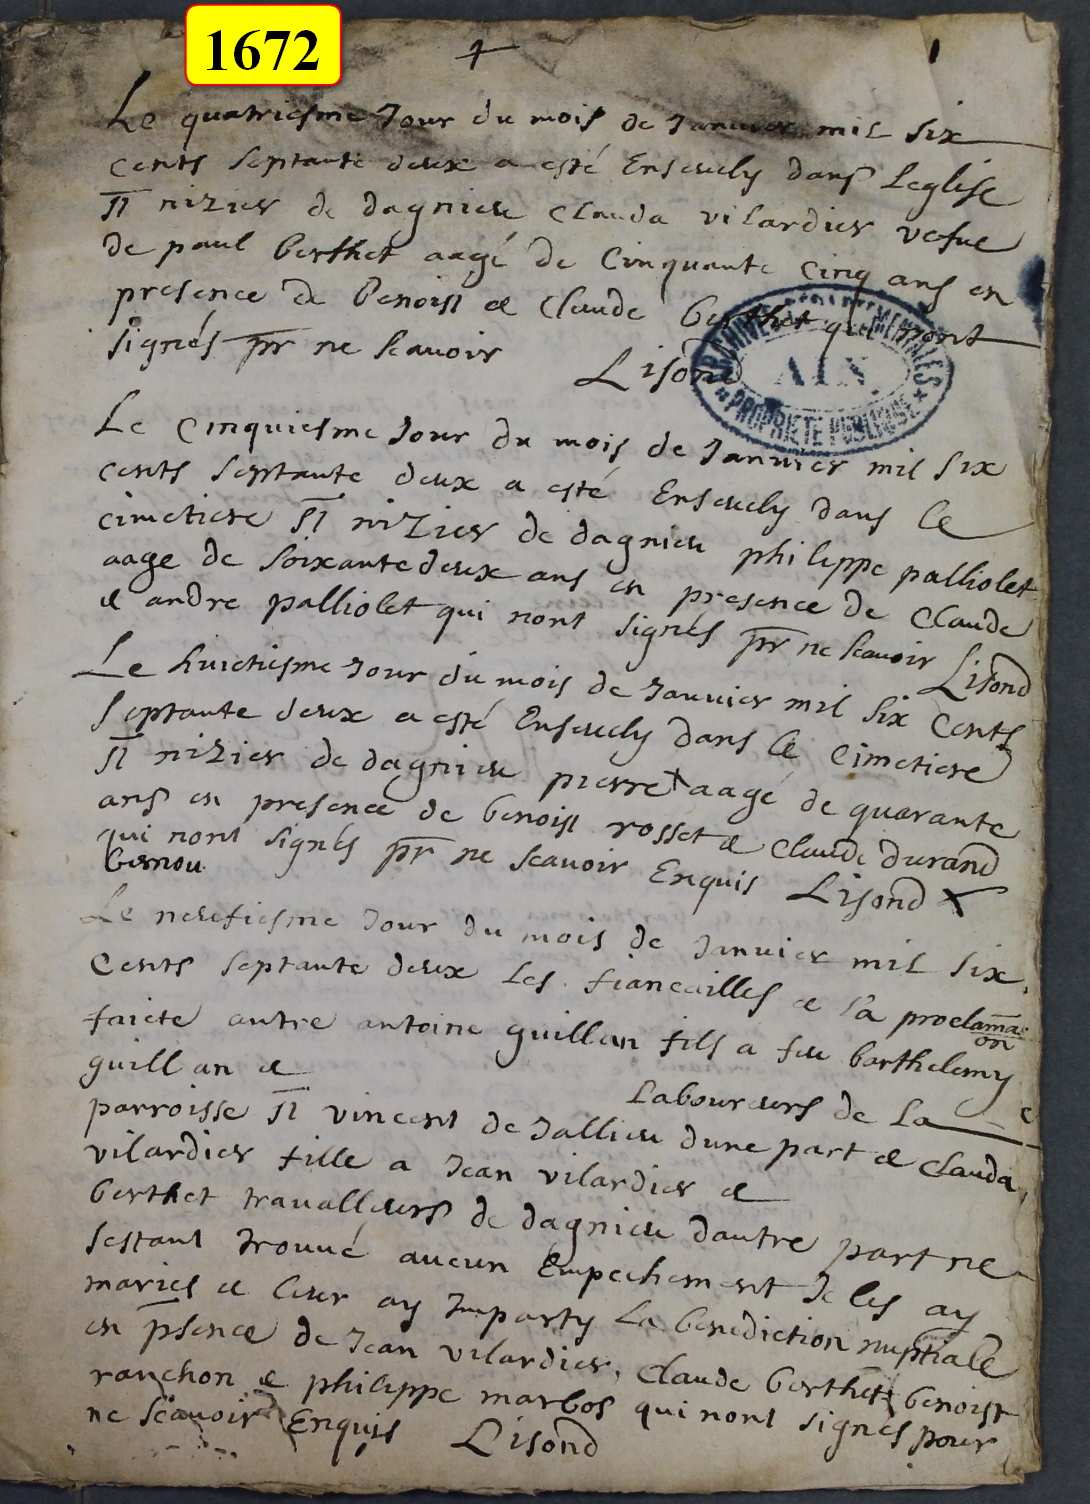 1672
1
Le quatriesme Jour du mois de Januier mil six
cents septante deux a esté Enseuely dans Leglise
St nizier de dagnieu Clauda vilardier vefue
de paul berthet aagé de Cinquante Cinq ans en
presence de benoist et Claude berthet qui nont
signés pr ne scauoir Lisond
ARCHIVES DEPARTEMENTALES
AIN
PROPRIETE PUBLIQUE
Le Cinquiesme Jour du mois de Januier mil six
cents septante deux a esté Enseuely dans le
cimetiere St nizier de dagnieu philippe palliolet
aage de soixante deux ans en presence de Claude
et andre palliolet qui nont signés pr ne scauoir Lisond
Le huictiesme Jour du mois de Januier mil six cents
septante deux a esté Enseuely dans le Cimetiere
St nizier de dagnieu pierre aagé de quarante
ans en presence de benoist rosset et Claude durand
qui nont signés pr ne scauoir Enquis Lisond
bernou
Le neufiesme Jour du mois de Januier mil six
Cents septante deux les fiancailles et la proclamaon
faicte autre antoine guillan fils a feu barthelemy
guillan et Laboureurs de La
parroisse St vincent de Jallieu dune part et Clauda
vilardier fille a Jean vilardier et
berthet trauailleurs de dagnieu dautre part ne
sestant trouué aucun Empechement Je les ay
maries et leur ay Imparty La benediction nuptiale
en psence de Jean vilardier, Claude berthet benoist
ranchon et philippe marbos qui nont signés pour
ne scauoir Enquis Lisond